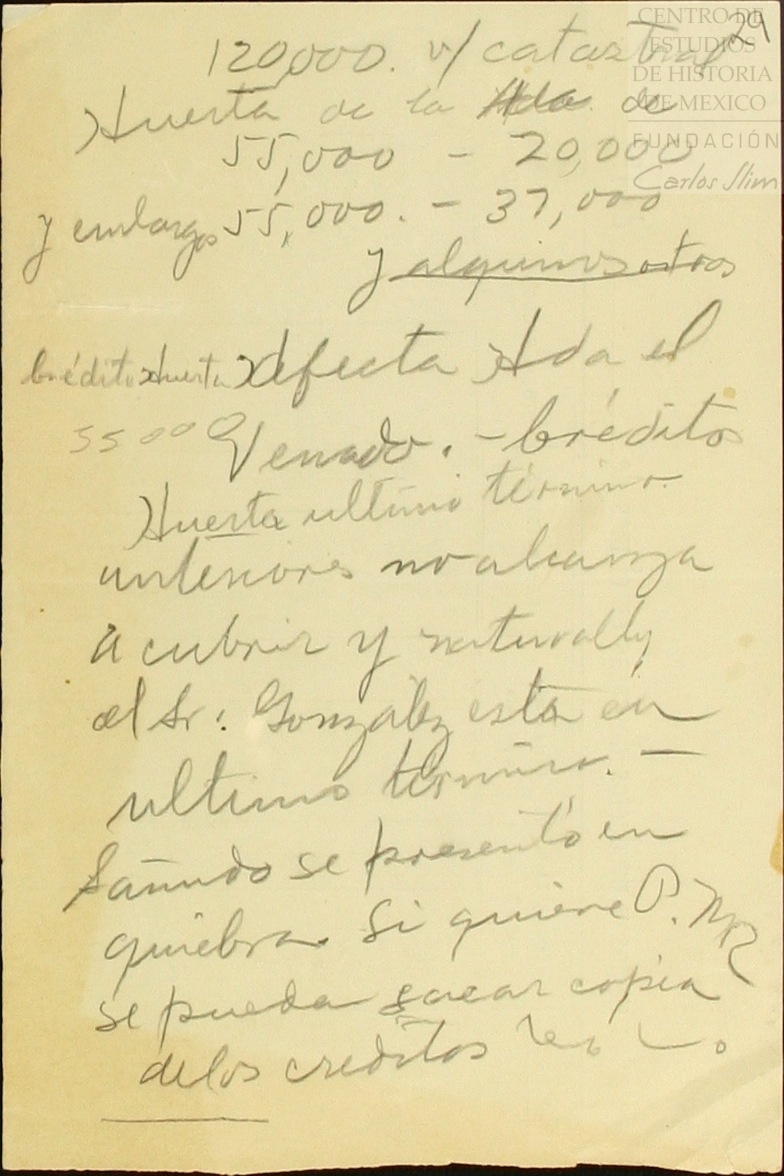 29
CENTRO DE
ESTUDIOS
DE HISTORIA
DE MEXICO
FUNDACIÓN
Carlos Slim
120,000. v/ catastral
Huerta de la Hda. de
55,000 - 20,000
y embargos 55,000. - 37,000
y algunos otros
Crédito Huerta afecta Hda el
55000 Venado. - Créditos
Huerta ultimo término.
anteriores no alcanza
a cubrir y naturally
el Sr. González esta en
ultimo término. -
Sañudo se presentó en
quiebra. Si quiere P.NR
se pueda sacar copia
de los creditos